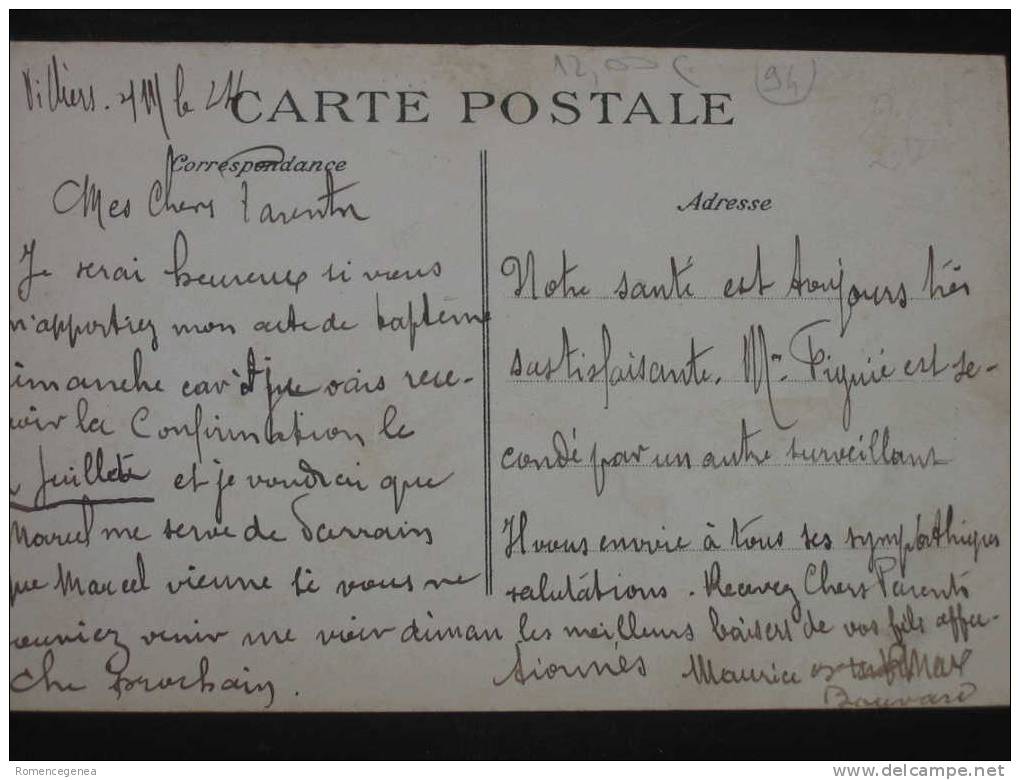 Villiers. s/M le 24
12,00 €
94
CARTE POSTALE
Correspondance
Adresse
Mes Chers Parents
Je serai heureux si vous
m'apportiez mon acte de baptême
imanche car je vais rece-
voir la Confirmation le
Juillet et je voudrai que
Marcel me serve de Parrain
que Marcel vienne si vous ne
pouviez venir me voir diman
che prochain.
Notre santé est toujours très
satisfaisante. Mr Piguié est se-
condé par un autre surveillant
Il vous envoie à tous ses sympathiques
salutations. Recevez Chers Parents
les meilleurs baisers de vos fils affec-
tionnés Maurice et Max
Bouvard
Romencegenea
www.delcampe.net